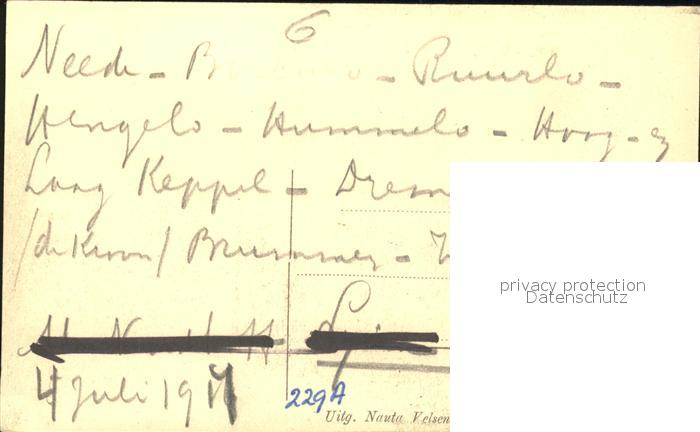 6
Neede - B - Ruurlo -
Hengelo - Hummelo - Hoog - en
Laag Keppel - Drem
/de Kroon/ Brummen -
4 Juli 19
229A
Uitg. Nauta Velsen
privacy protection
Datenschutz